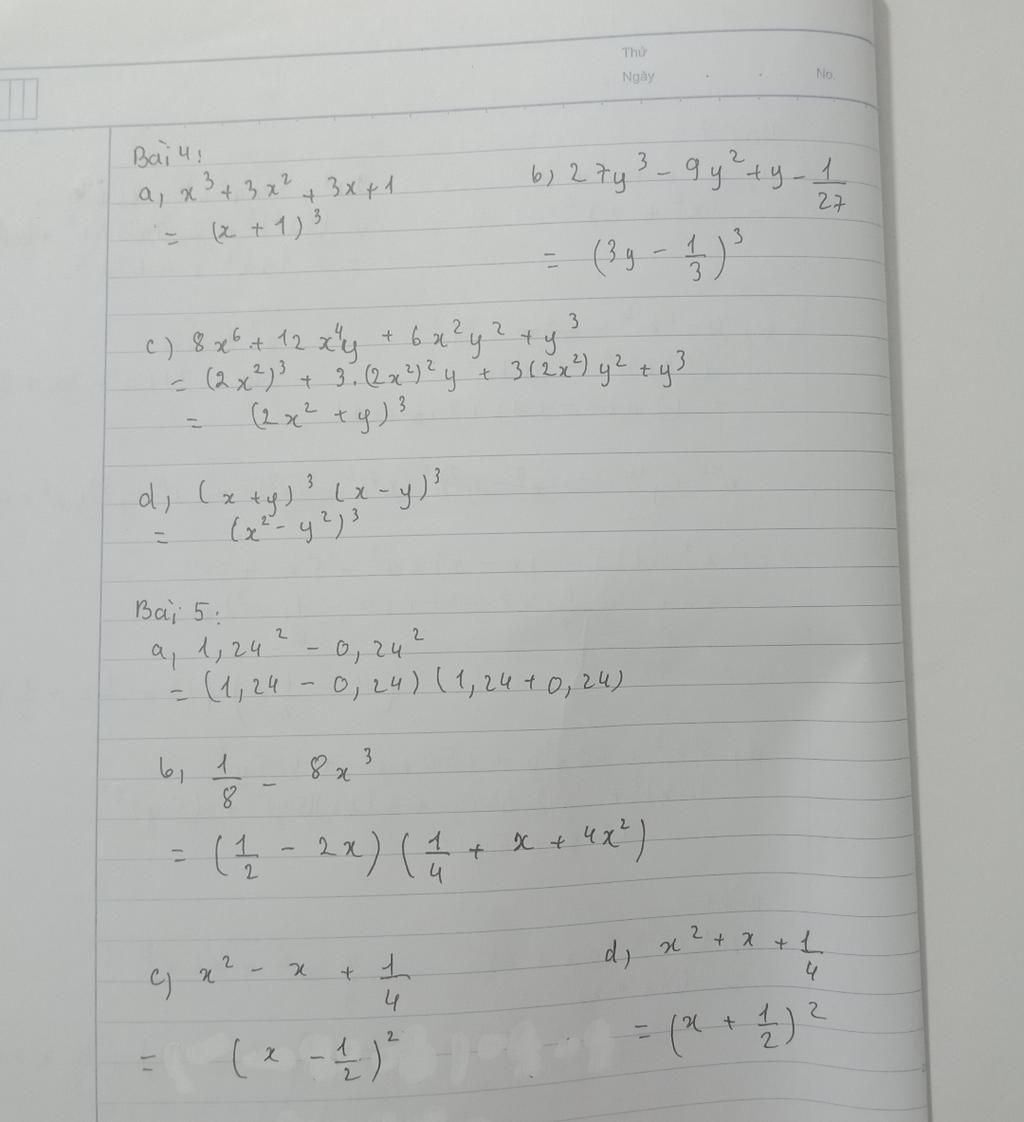 Thứ
Ngày . . No.
Bài 4:
a, x³ + 3x² + 3x + 1
= (x + 1)³
b, 27y³ - 9y² + y - 1/27
= (3y - 1/3)³
c) 8x⁶ + 12x⁴y + 6x²y² + y³
= (2x²)³ + 3.(2x²)²y + 3(2x²)y² + y³
= (2x² + y)³
d, (x + y)³ (x - y)³
= (x² - y²)³
Bài 5:
a, 1,24² - 0,24²
= (1,24 - 0,24) (1,24 + 0,24)
b, 1/8 - 8x³
= (1/2 - 2x) (1/4 + x + 4x²)
c, x² - x + 1/4
= (x - 1/2)²
d, x² + x + 1/4
= (x + 1/2)²